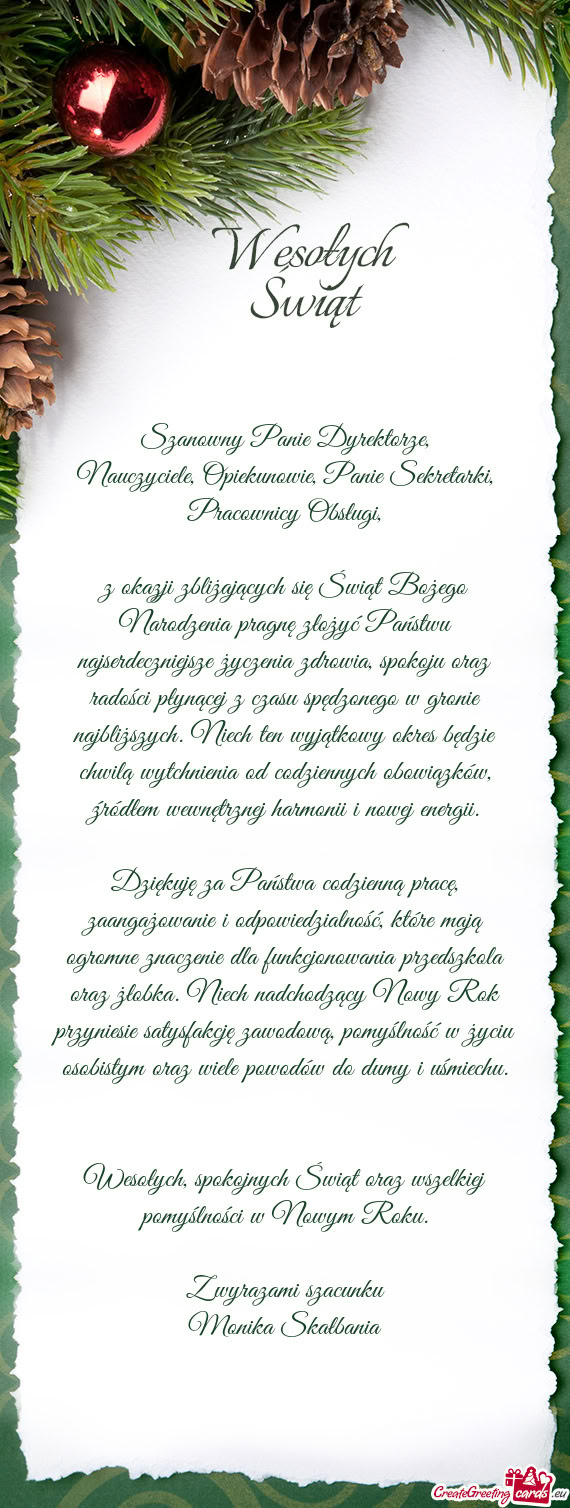 Wesołych
Świąt
Szanowny Panie Dyrektorze,
Nauczyciele, Opiekunowie, Panie Sekretarki,
Pracownicy Obsługi,
z okazji zbliżających się Świąt Bożego
Narodzenia pragnę złożyć Państwu
najserdeczniejsze życzenia zdrowia, spokoju oraz
radości płynącej z czasu spędzonego w gronie
najbliższych. Niech ten wyjątkowy okres będzie
chwilą wytchnienia od codziennych obowiązków,
źródłem wewnętrznej harmonii i nowej energii.
Dziękuję za Państwa codzienną pracę,
zaangażowanie i odpowiedzialność, które mają
ogromne znaczenie dla funkcjonowania przedszkola
oraz żłobka. Niech nadchodzący Nowy Rok
przyniesie satysfakcję zawodową, pomyślność w życiu
osobistym oraz wiele powodów do dumy i uśmiechu.
Wesołych, spokojnych Świąt oraz wszelkiej
pomyślności w Nowym Roku.
Zwyrazami szacunku
Monika Skałbania
CreateGreetingcards.eu